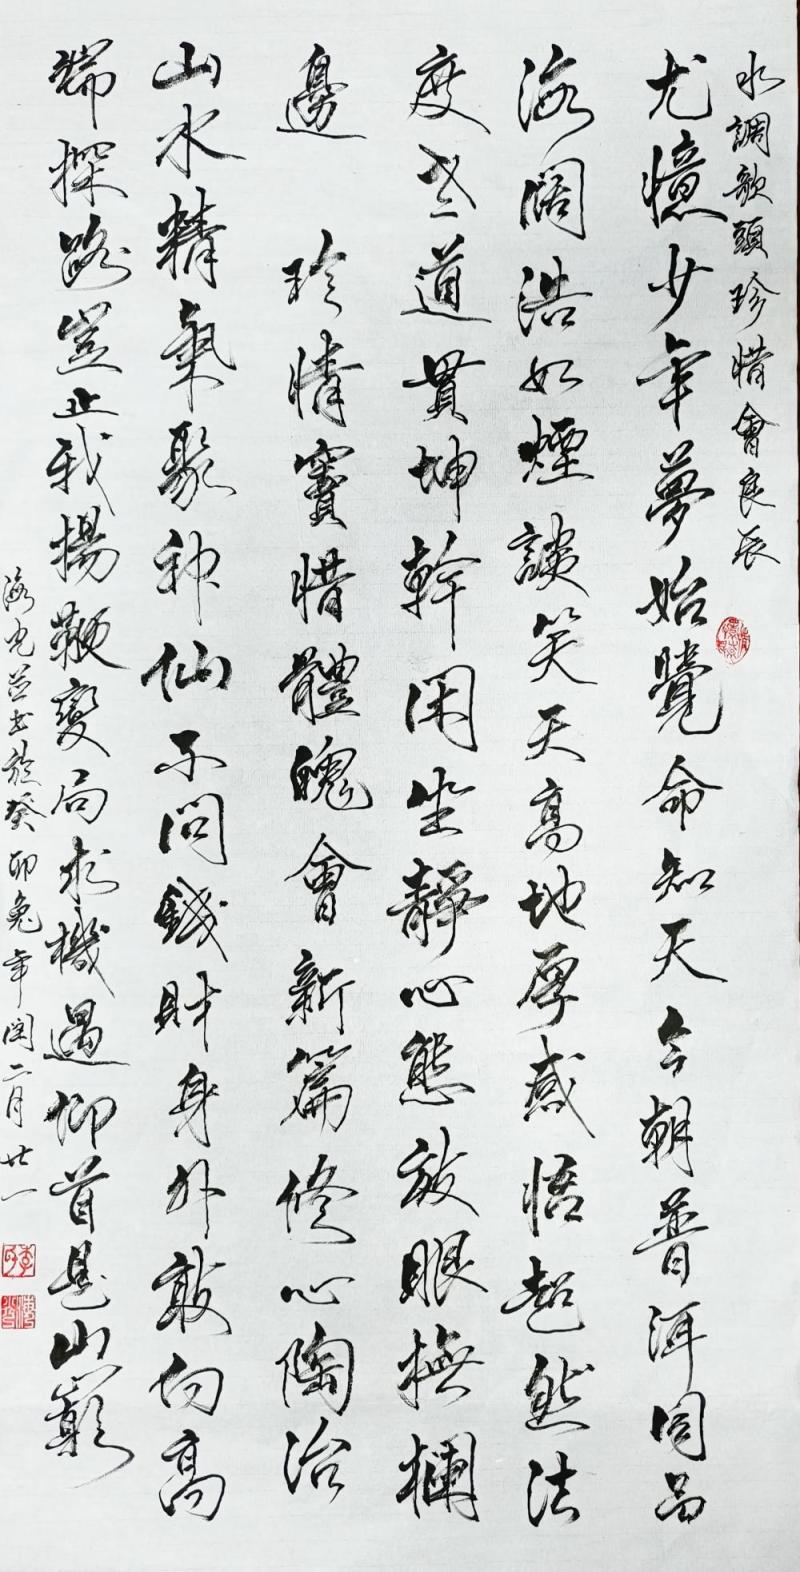 水調歌頭珍惜會良辰
尤憶少年夢始覺命知天今朝普洱同品
海闊浩如煙談笑天高地厚感悟超然法
度老道貫坤幹閑坐靜心態放眼撫欄
邊 珍情寶惜體魄會新篇修心陶冶
山水精氣聚神仙不問錢財身外敢向高
端探路豈止我揚鞭變局求機遇仰首是山巔
海光并書於癸卯兔年閏二月廿一